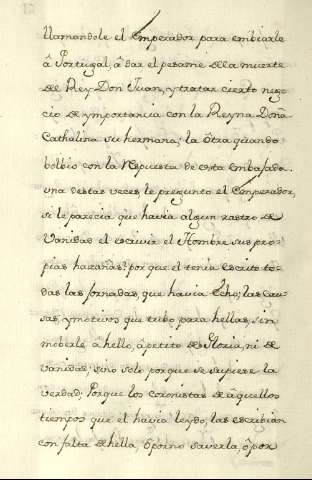 llamandole el Emperador para embiarle
â Portugal, â dar el pesame de la muerte
de el Rey Don Juan, y tratar cierto nego
cio de ymportancia con la Reyna Doña
Cathalina su hermana; la ôtra quando
bolbio con la Repuesta de esta embajada.
una destas veces le pregunto el Emperador,
si le parecia que havia algun rastro de
Vanidad el escrivir el Hombre sus pro
pias hazañas? por que el tenia escrito to-
das las Jornadas, que havia Echo, las cau-
sas, y motivos que tubo para hellas, sin
moberle â hello, âpetito de Gloria, ni de
vanidad; sino solo porque se supiese la
verdad; Porque los coronistas de âquellos
tiempos que el havia leydo, las escribian
con falta de hella, ô por no saverla, ô por